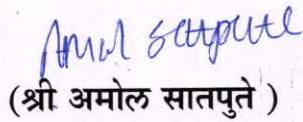 Amol Satpute
(श्री अमोल सातपुते )